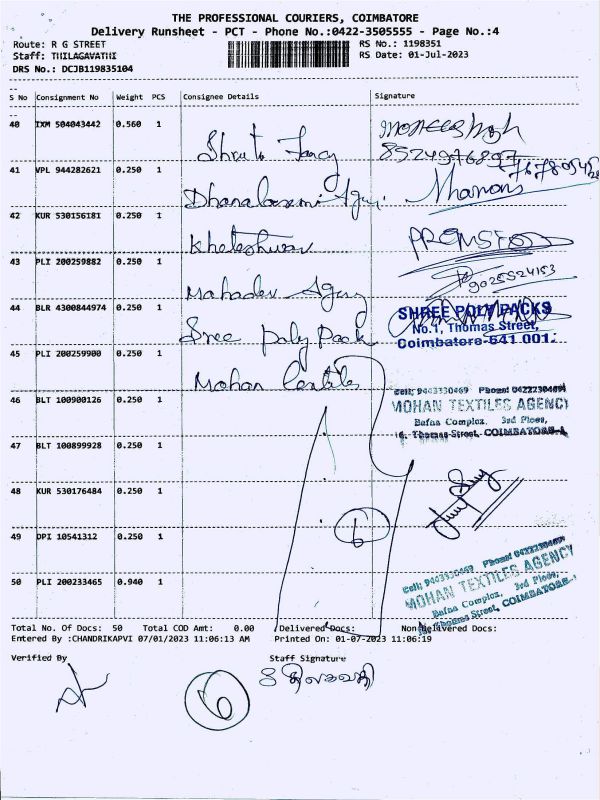 THE PROFESSIONAL COURIERS, COIMBATORE
Delivery Runsheet - PCT - Phone No.:0422-3505555 - Page No.:4
Route: R G STREET
RS No.: 1198351
Staff: THILAGAVATHI
RS Date: 01-Jul-2023
DRS No.: DCJB119835104
S No Consignment No Weight PCS Consignee Details Signature
40 IXM 504043442 0.560 1 Moneesh
8524976897
41 VPL 944282621 0.250 1 Dhanalaxmi
42 KUR 530156181 0.250 1
43 PLI 200259882 0.250 1 Mahadev
9025524153
44 BLR 4300844974 0.250 1 Sree Poly Pack
SHREE POLY PACKS
No.1, Thomas Street,
Coimbatore-641 001.
45 PLI 200259900 0.250 1 Mohan
46 BLT 100900126 0.250 1
Cell: 9443330469 Phone: 04222304694
MOHAN TEXTILES AGENCY
Bafna Complex, 3rd Floor,
Thomas Street, COIMBATORE-1
47 BLT 100899928 0.250 1
48 KUR 530176484 0.250 1
49 DPI 10541312 0.250 1
6
50 PLI 200233465 0.940 1
MOHAN TEXTILES AGENCY
Bafna Complex, 3rd Floor,
Thomas Street, COIMBATORE-1
Total No. Of Docs: 50 Total COD Amt: 0.00 Delivered Docs: Non Delivered Docs:
Entered By :CHANDRIKAPVI 07/01/2023 11:06:13 AM Printed On: 01-07-2023 11:06:19
Verified By Staff Signature
6